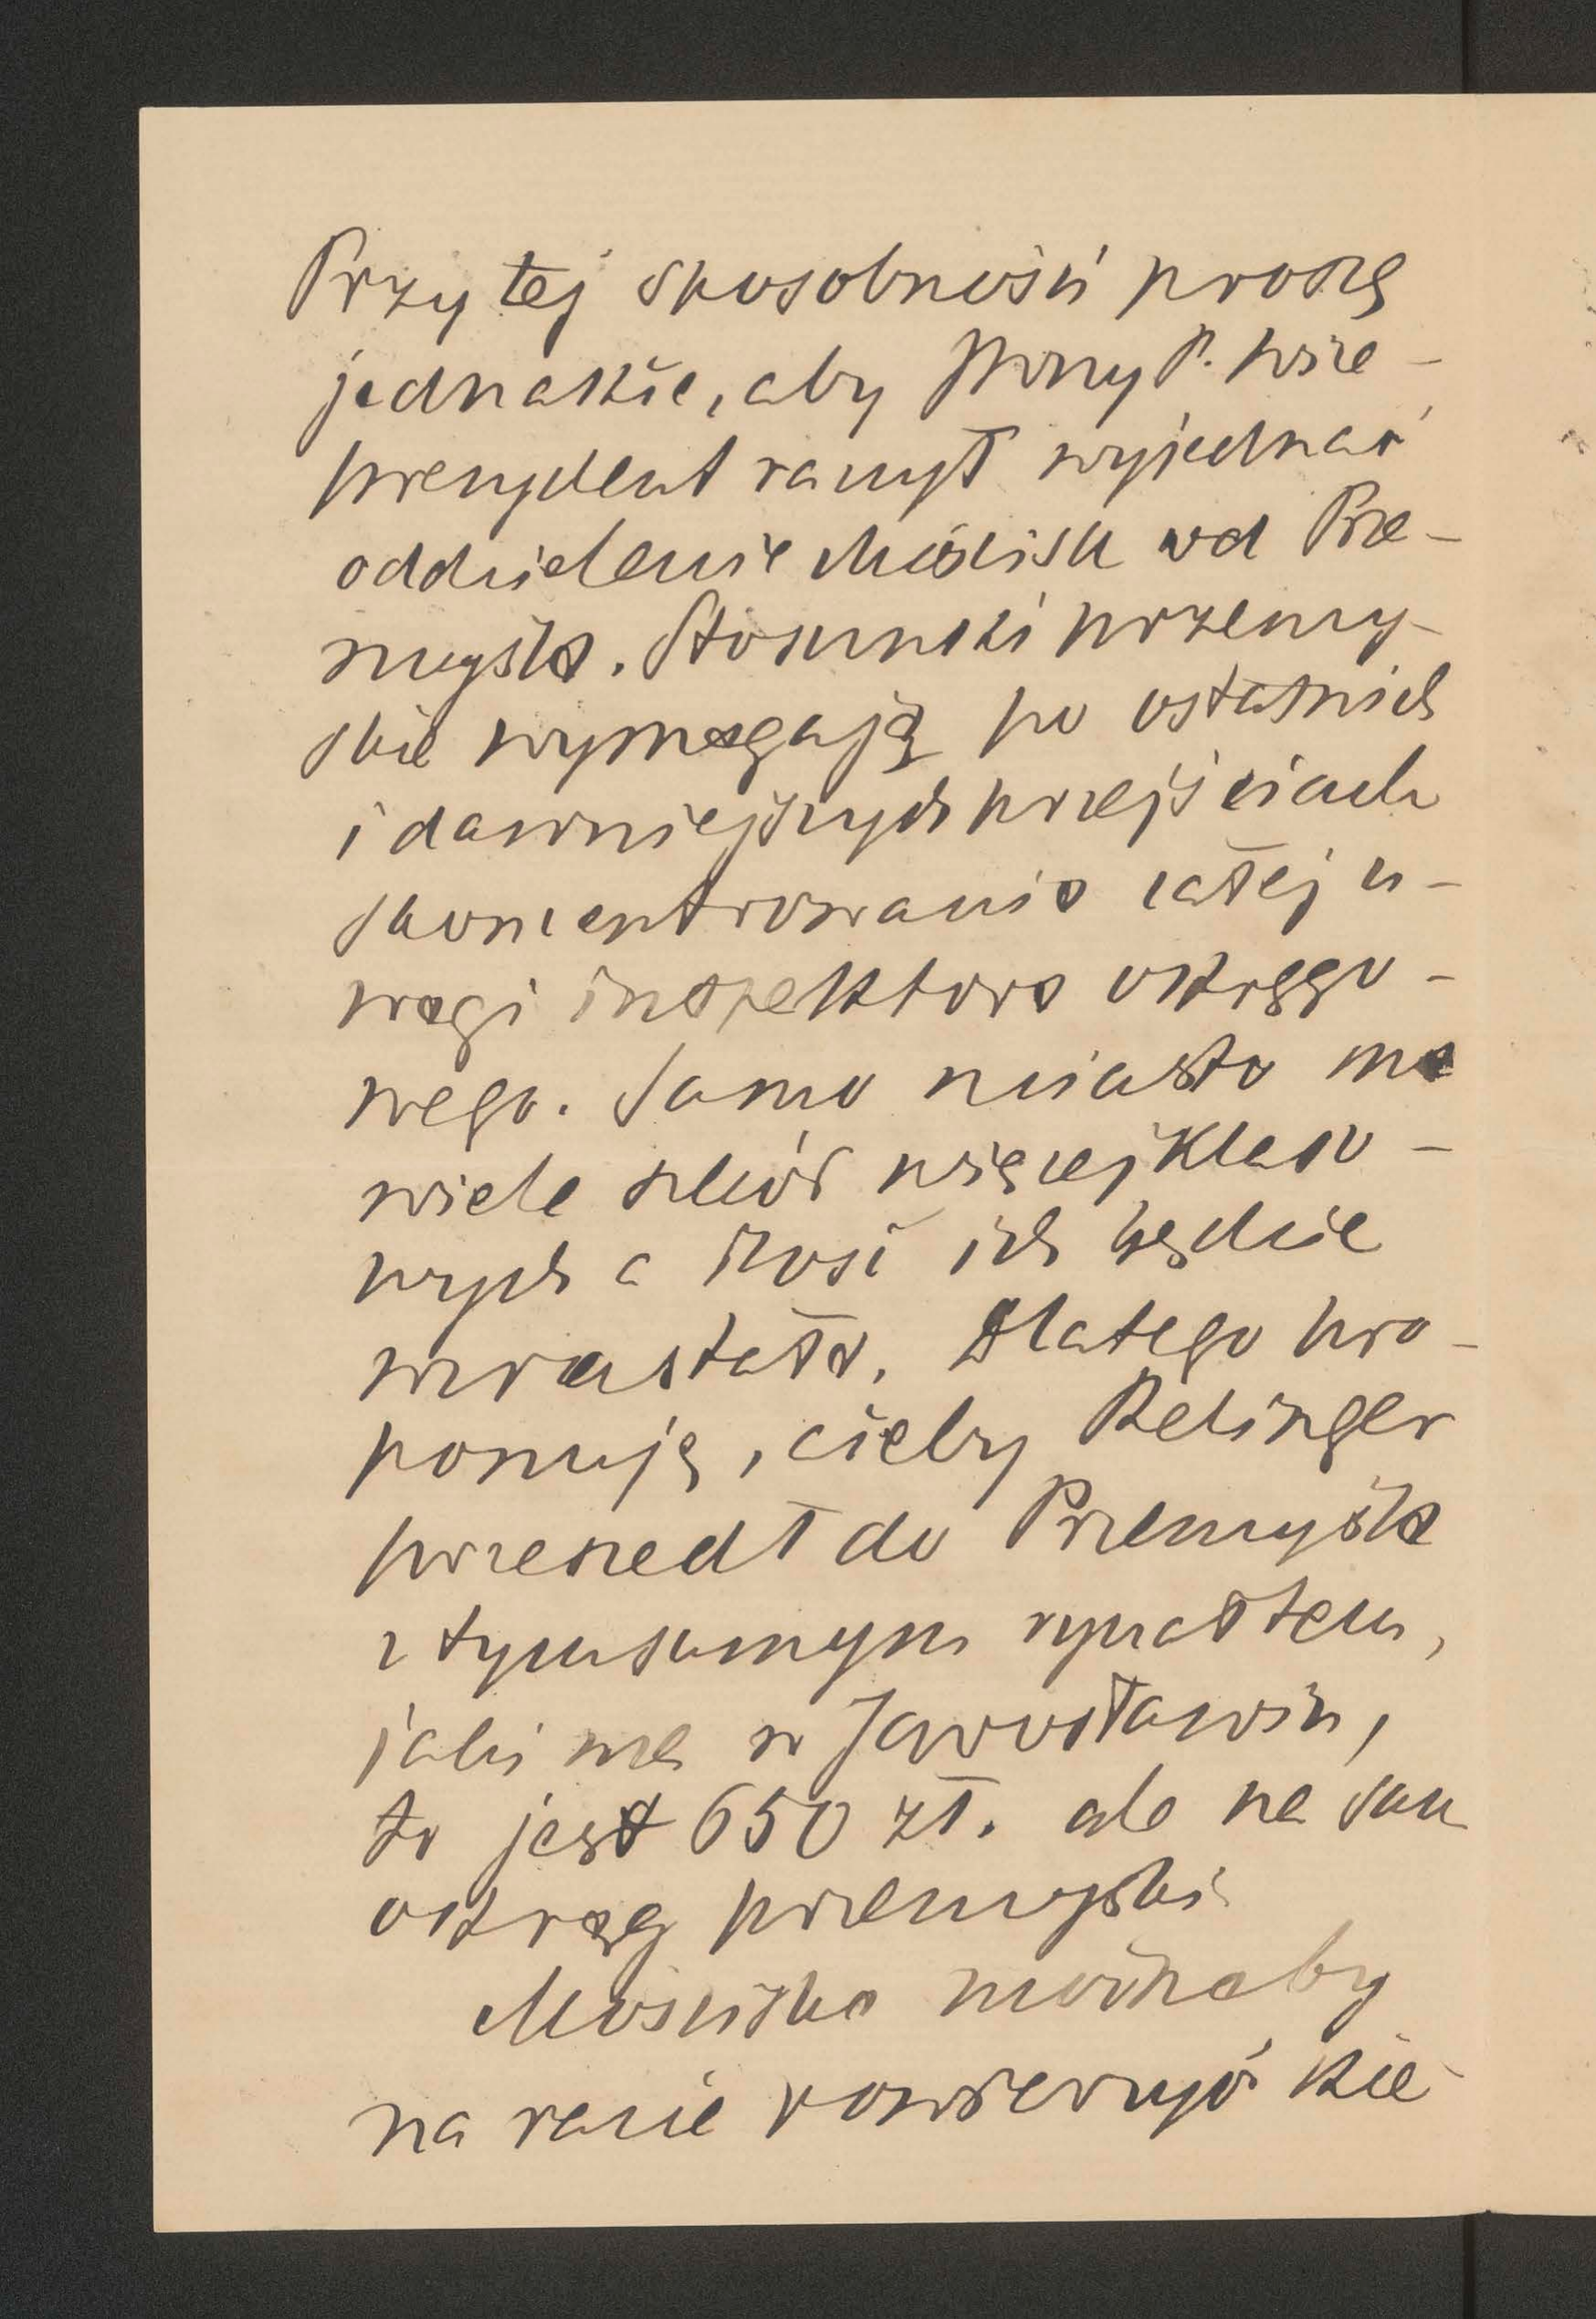 Przy tej sposobności proszę
jednakże, aby JWny P. Wice-
prezydent raczył wyjednać
oddzielenie Mościsk od Prze-
myśla. Stosunki przemy-
skie wymagają po ostatnich
i dawniejszych przejściach
skoncentrowania całej u-
wagi inspektora okręgo-
wego. Samo miasto ma
wiele szkół więcej klaso-
wych a ilość ich będzie
wzrastała. Dlatego pro-
ponuję, ażeby Relinger
przeszedł do Przemyśla
z tym samym ryczałtem,
jaki ma w Jarosławiu,
to jest 650 zł. ale na sam
okręg przemyski
Mościska możnaby
na razie powierzyć kie-